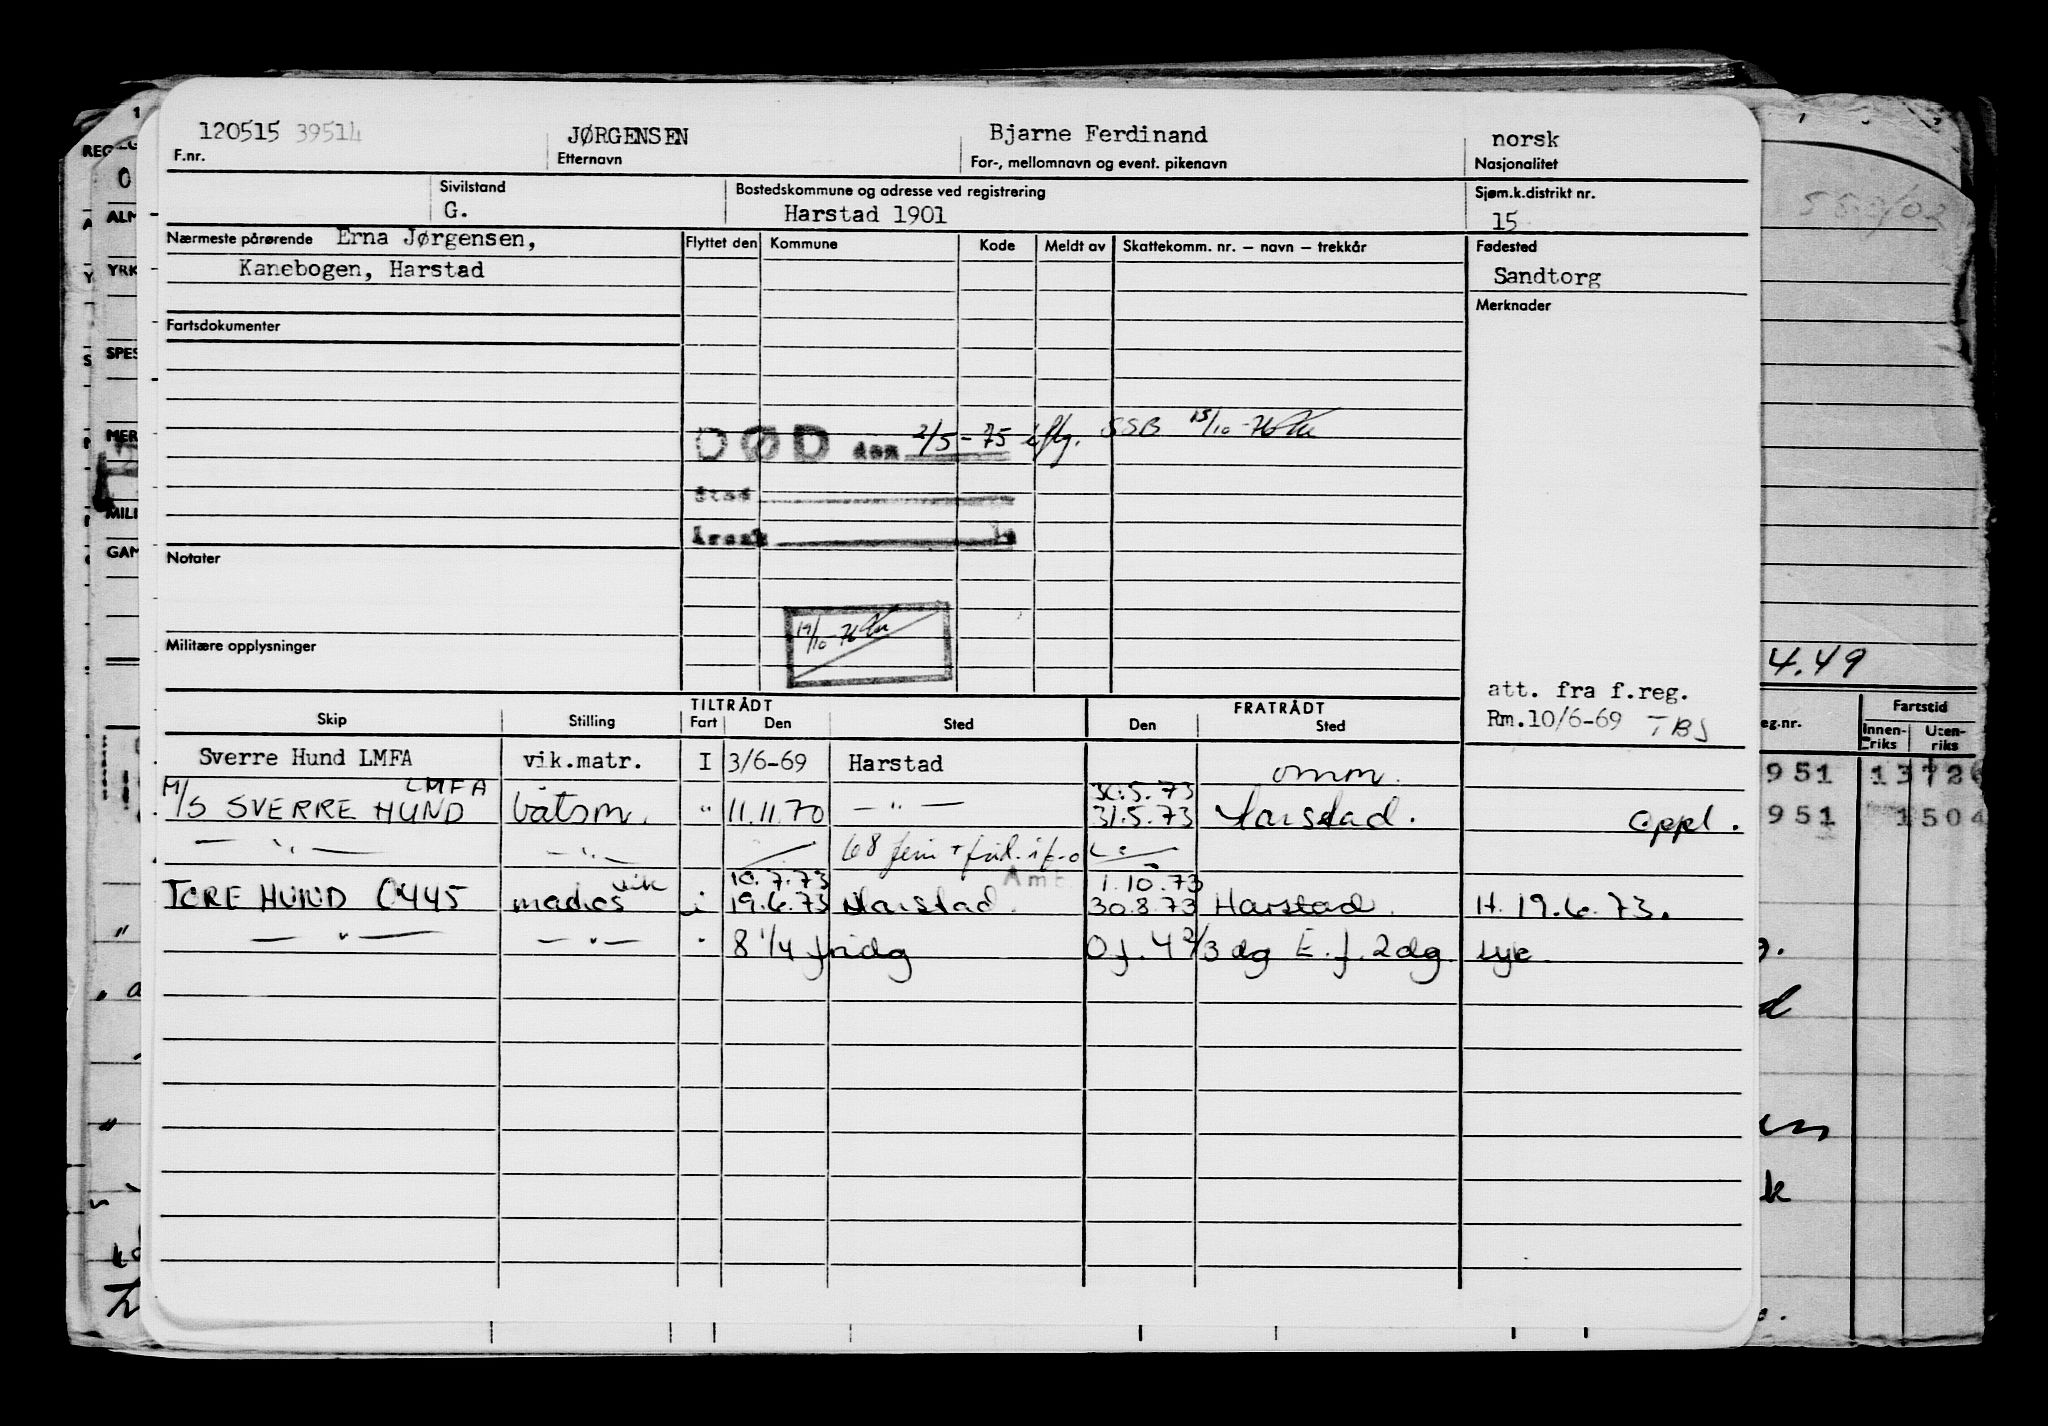 120515 39514 JØRGENSEN Bjarne Ferdinand norsk
F.nr. Etternavn For-, mellomnavn og event. pikenavn Nasjonalitet
Sivilstand Bostedskommune og adresse ved registrering Sjøm.k.distrikt nr.
G. Harstad 1901 15
Nærmeste pårørende Erna Jørgensen, Flyttet den Kommune Kode Meldt av Skattekomm. nr. – navn – trekkår Fødested
Kanebogen, Harstad Sandtorg
Merknader
Fartsdokumenter
DØD den 2/5-75 iflg. SSB 15/10-76
Sted
Årsak
Notater
19/10-76
Militære opplysninger
att. fra f.reg.
Rm.10/6-69 TBJ
TILTRÅDT FRATRÅDT
Skip Stilling Fart Den Sted Den Sted
Sverre Hund LMFA vik.matr. I 3/6-69 Harstad omm.
LMFA 30.5.73
M/S SVERRE HUND båtsm. " 11.11.70 — " — 31.5.73 Harstad. oppl.
— " — — " — 68
vik 10.7.73 1.10.73
TORE HUND 0445 mados i 19.6.73 Harstad. 30.8.73 Harstad. H. 19.6.73.
— " — — " — " 8 1/4 fridg 0 f. 4 2/3 dg E. f. 2 dg syk
REG
0
ALM
YRK
SPES
MER
MILI
GAM
4.49
eg.nr. Fartstid
Innen-riks Uten-riks
951
951 1504